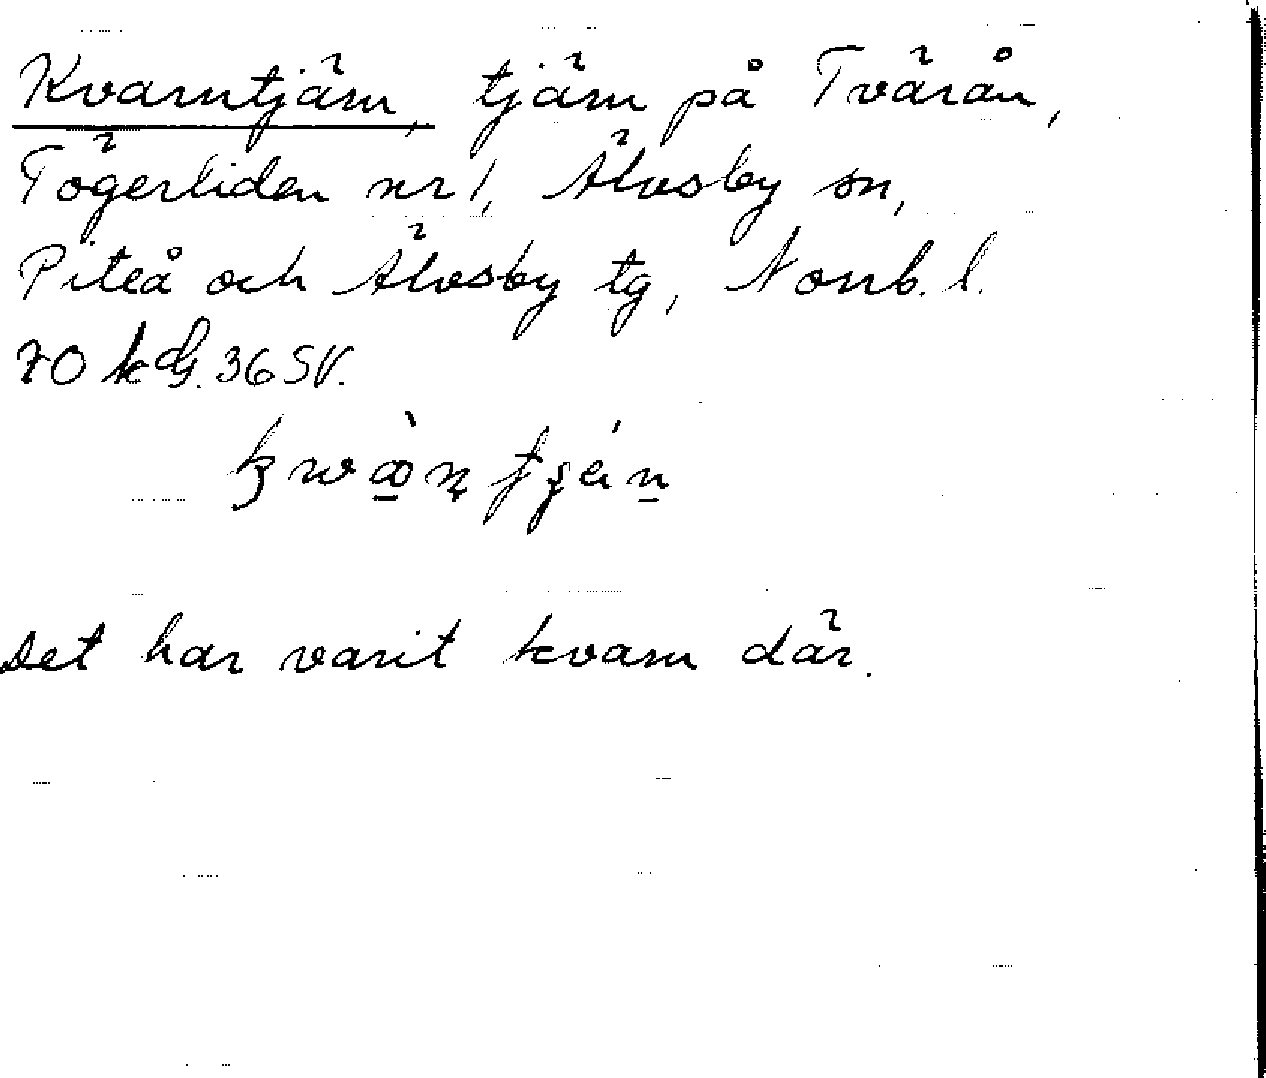 Kvarntjärn, tjärn på Tvärån,
Tögerliden nr 1, Älvsby sn,
Piteå och Älvsby tg, Norrb. l.
70 kG. 36 SV.
Det har varit kvarn där.